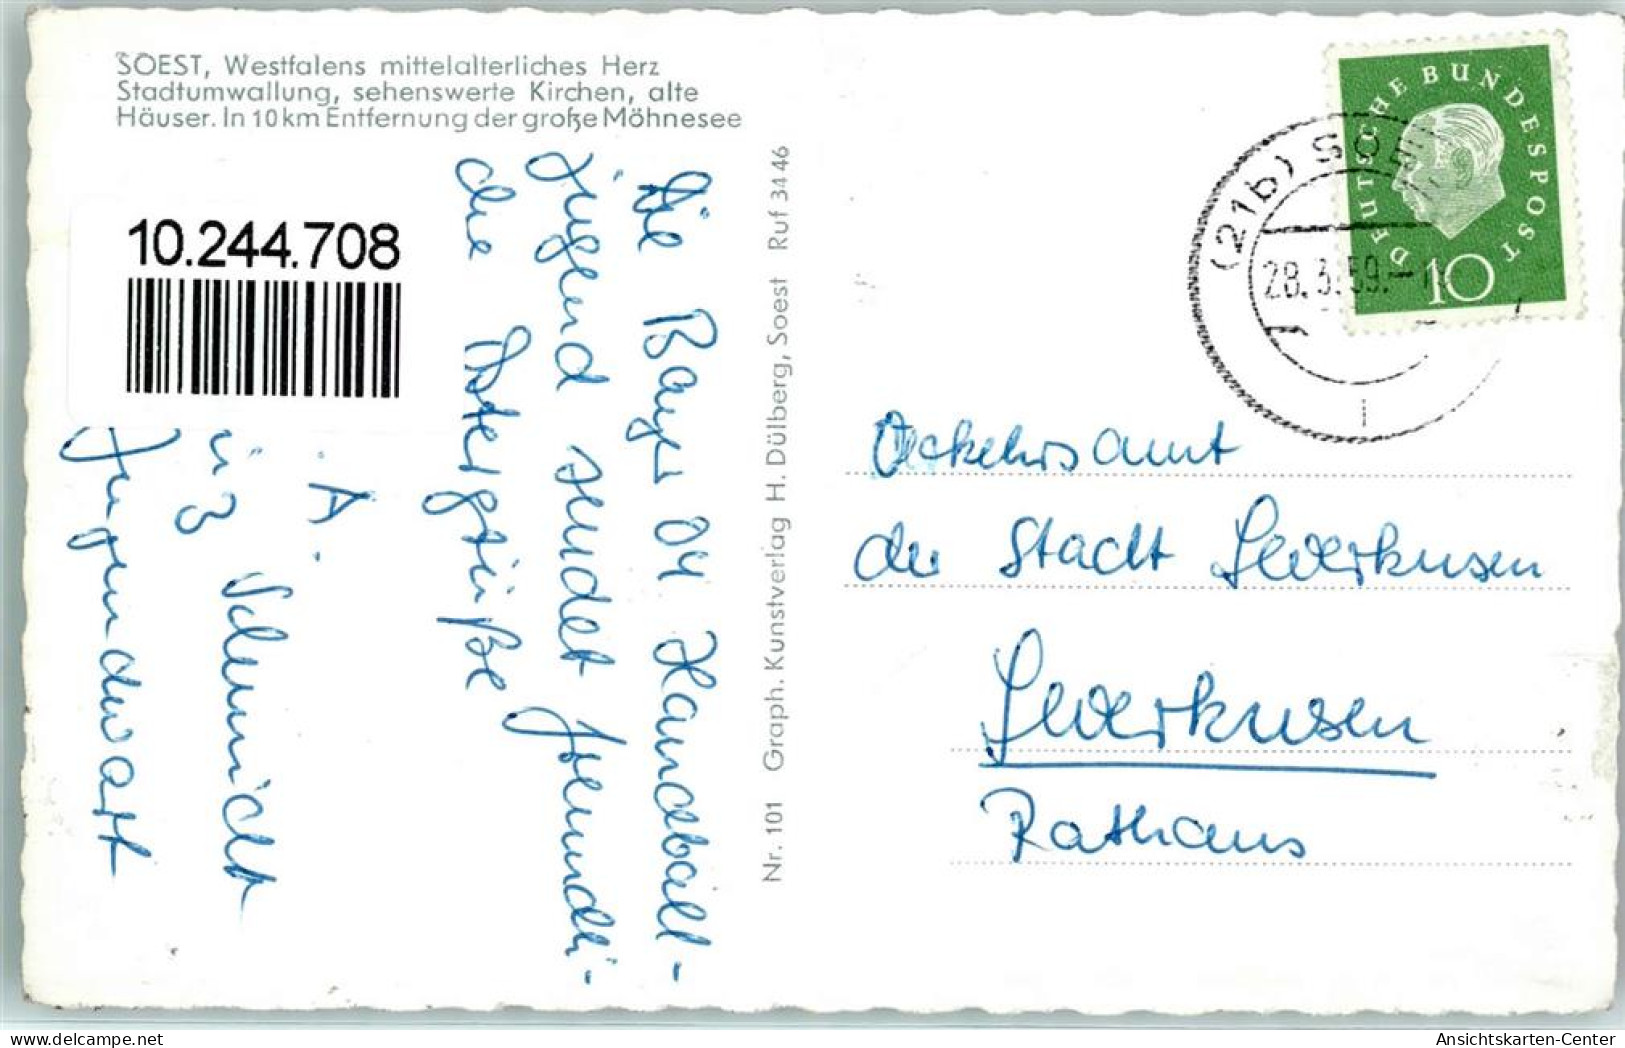 SOEST, Westfalens mittelalterliches Herz
Stadtumwallung, sehenswerte Kirchen, alte
Häuser. In 10 km Entfernung der große Möhnesee
10.244.708
Die Bayer 04 Handball-
jugend sendet freundli-
che Ostergrüße
A.
Schmidt
Jugendwart
Nr. 101 Graph. Kunstverlag H. Dülberg, Soest Ruf 3446
DEUTSCHE BUNDESPOST
10
(21b) SOE
28.3.59.-1
Verkehrsamt
der Stadt Leverkusen
Leverkusen
Rathaus
Ansichtskarten-Center
www.delcampe.net